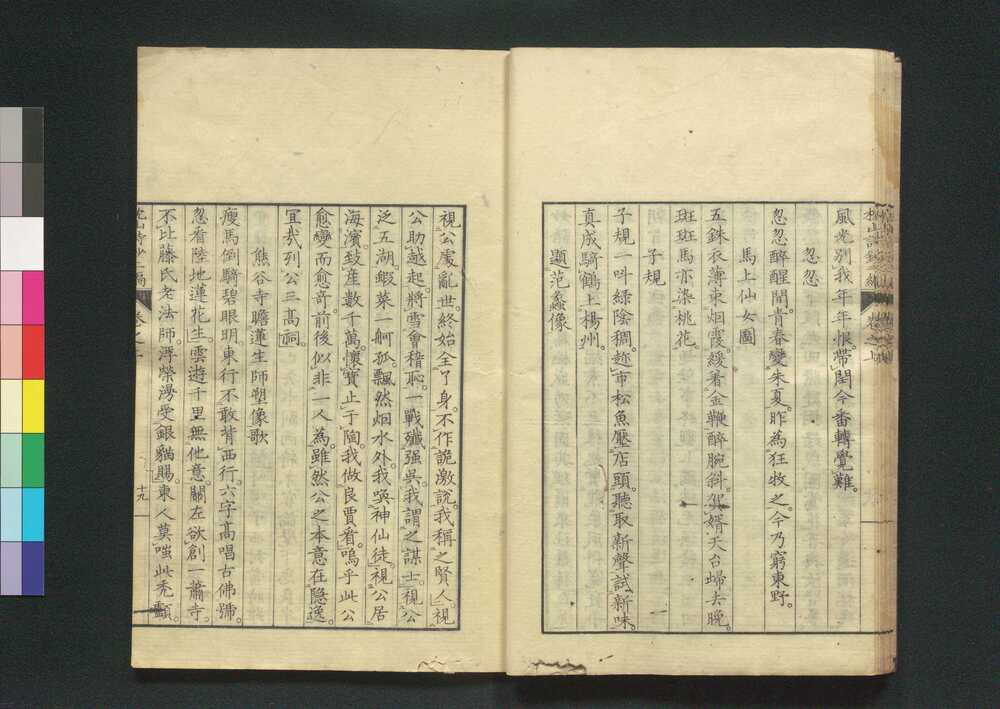 風光別我年年恨。帶閏今番轉覺難。
忽忽
忽忽醉醒間。青春變朱夏。昨為狂牧之。今乃窮東野。
馬上仙女圖
五銖衣薄束烟霞。緩着金鞭醉腕斜。駕婿天台歸去晚。
斑斑馬亦染桃花。
子規
子規一叫綠陰稠。趁市松魚壓店頭。聽取新聲試新味。
真成騎鶴上楊州。
題范蠡像
視公處亂世。終始全了身。不作詭激說。我稱之賢人。視
公助越起。將雪會稽恥。一戰殲強吳。我謂之謀士。視公
泛五湖。蝦菜一舸孤。飄然烟水外。我喚神仙徒。視公居
海濱。致產數千萬。懷寶止于陶。我做良賈看。嗚乎此公
愈變而愈奇。前後似非一人為。雖然公之本意在隱逸。
宜哉列公三高祠。
熊谷寺瞻蓮生師塑像歌
瘦馬倒騎碧眼明。東行不敢背西行。六字高唱古佛號。
忽看陸地蓮花生。雲遊千里無他意。關左欲創一蕭寺。
不比藤氏老法師。浮榮濟受銀貓賜。東人莫嗤此禿顱。
卷之
十九